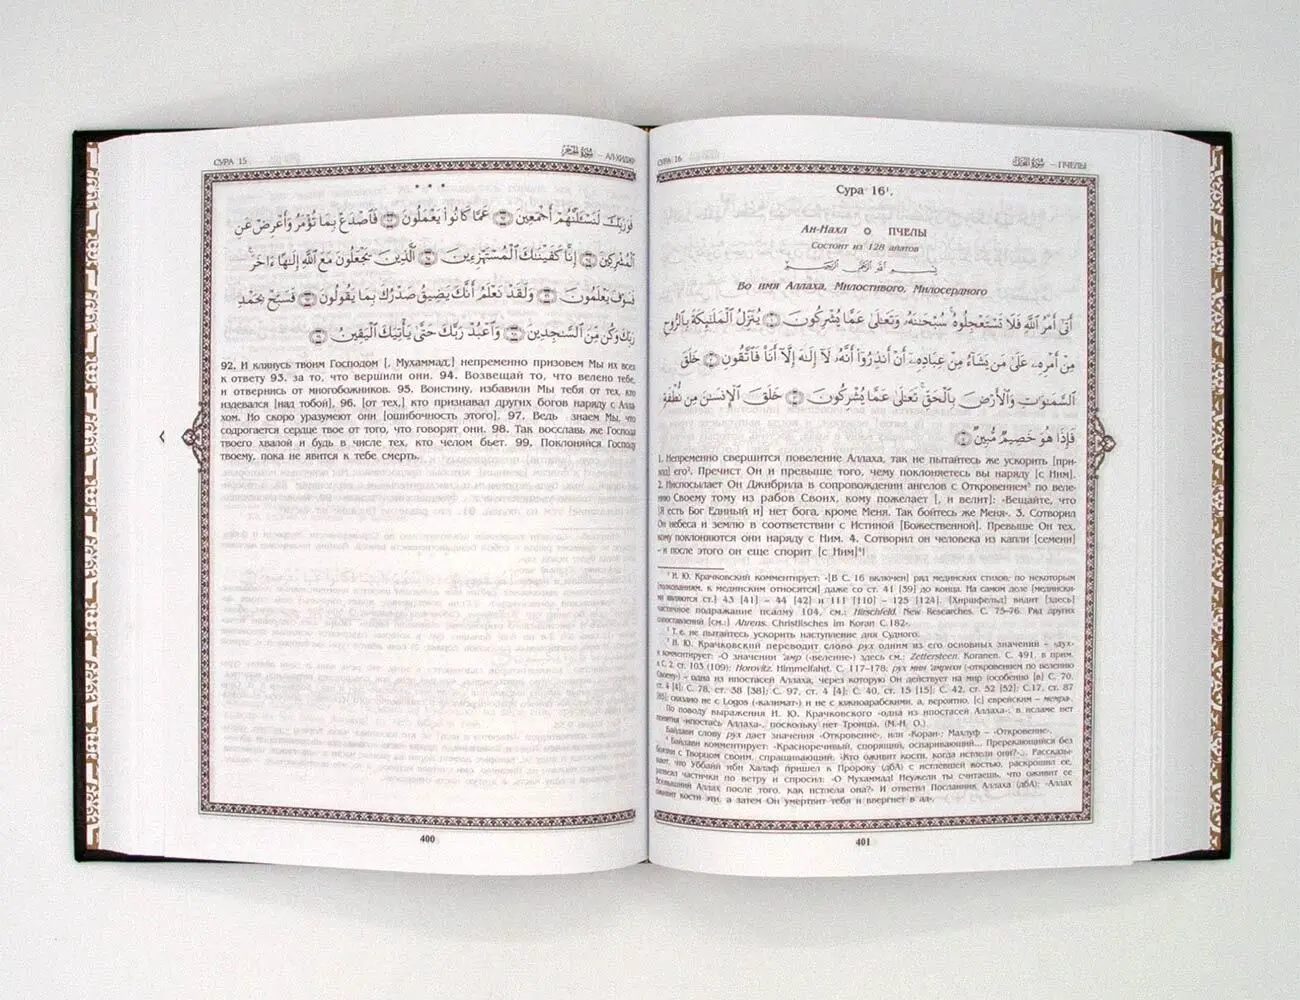 СУРА 15
سورة الحجر — АЛ-ХИДЖР
* * *
فَوَرَبِّكَ لَنَسْـَٔلَنَّهُمْ أَجْمَعِينَ ٩٢ عَمَّا كَانُوا۟ يَعْمَلُونَ ٩٣ فَٱصْدَعْ بِمَا تُؤْمَرُ وَأَعْرِضْ عَنِ
ٱلْمُشْرِكِينَ ٩٤ إِنَّا كَفَيْنَـٰكَ ٱلْمُسْتَهْزِءِينَ ٩٥ ٱلَّذِينَ يَجْعَلُونَ مَعَ ٱللَّهِ إِلَـٰهًا ءَاخَرَ
فَسَوْفَ يَعْلَمُونَ ٩٦ وَلَقَدْ نَعْلَمُ أَنَّكَ يَضِيقُ صَدْرُكَ بِمَا يَقُولُونَ ٩٧ فَسَبِّحْ بِحَمْدِ
رَبِّكَ وَكُن مِّنَ ٱلسَّـٰجِدِينَ ٩٨ وَٱعْبُدْ رَبَّكَ حَتَّىٰ يَأْتِيَكَ ٱلْيَقِينُ ٩٩
92. И клянусь твоим Господом [, Мухаммад,] непременно призовем Мы их всех
к ответу 93. за то, что вершили они. 94. Возвещай то, что велено тебе,
и отвернись от многобожников. 95. Воистину, избавили Мы тебя от тех, кто
издевался [над тобой], 96. [от тех,] кто признавал других богов наряду с Алла
хом. Но скоро уразумеют они [ошибочность этого]. 97. Ведь знаем Мы, что
содрогается сердце твое от того, что говорят они. 98. Так восславь же Господа
твоего хвалой и будь в числе тех, кто челом бьет. 99. Поклоняйся Господу
твоему, пока не явится к тебе смерть.
400
СУРА 16
سورة النحل — ПЧЕЛЫ
Сура 16¹.
Ан-Нахл ПЧЕЛЫ
Состоит из 128 аятов
بسم الله الرحمن الرحيم
Во имя Аллаха, Милостивого, Милосердного
أَتَىٰٓ أَمْرُ ٱللَّهِ فَلَا تَسْتَعْجِلُوهُ سُبْحَـٰنَهُۥ وَتَعَـٰلَىٰ عَمَّا يُشْرِكُونَ ١ يُنَزِّلُ ٱلْمَلَـٰٓئِكَةَ بِٱلرُّوحِ
مِنْ أَمْرِهِۦ عَلَىٰ مَن يَشَآءُ مِنْ عِبَادِهِۦٓ أَنْ أَنذِرُوٓا۟ أَنَّهُۥ لَآ إِلَـٰهَ إِلَّآ أَنَا۠ فَٱتَّقُونِ ٢ خَلَقَ
ٱلسَّمَـٰوَٰتِ وَٱلْأَرْضَ بِٱلْحَقِّ تَعَـٰلَىٰ عَمَّا يُشْرِكُونَ ٣ خَلَقَ ٱلْإِنسَـٰنَ مِن نُّطْفَةٍ
فَإِذَا هُوَ خَصِيمٌ مُّبِينٌ ٤
1. Непременно свершится повеление Аллаха, так не пытайтесь же ускорить [при-
ход] его². Пречист Он и превыше того, чему поклоняетесь вы наряду [с Ним].
2. Ниспосылает Он Джибрила в сопровождении ангелов с Откровением³ по веле-
нию Своему тому из рабов Своих, кому пожелает [, и велит]: «Вещайте, что
[Я есть Бог Единый и] нет бога, кроме Меня. Так бойтесь же Меня». 3. Сотворил
Он небеса и землю в соответствии с Истиной [Божественной]. Превыше Он тех,
кому поклоняются они наряду с Ним. 4. Сотворил он человека из капли [семени]
- и после этого он еще спорит [с Ним]⁴!
¹ И. Ю. Крачковский комментирует: «[В С. 16 включен] ряд мединских стихов; по некоторым
[толкованиям, к мединским относятся] даже со ст. 41 [39] до конца. На самом деле [медински-
ми являются ст.] 43 [41] – 44 [42] и 111 [110] – 125 [124]. [Хиршфельд] видит [здесь]
частичное подражание псалму 104, см.: Hirschfeld. New Researches. С. 75-76. Ряд других
сопоставлений [см.:] Ahrens. Christlisches im Koran С.182».
² Т. е. не пытайтесь ускорить наступление дня Судного.
³ И. Ю. Крачковский переводит слово рух одним из его основных значений – «дух»
и комментирует: «О значении 'амр («веление») здесь см.: Zettersteen. Koranen. С. 491, в прим.
к С. 2, ст. 103 (109); Horovitz. Himmelfahrt. С. 117–178; рух мин 'амрихи («откровением по велению
Своему») – одна из ипостасей Аллаха, через которую Он действует на мир (особенно [в] С. 70,
ст. 4 [4]; С. 78, ст. 38 [38]; С. 97, ст. 4 [4]; С. 40, ст. 15 [15]; С. 42, ст. 52 [52]; С.17, ст. 87
[85]; сказано не с Logos («калимат») и не с южноарабскими, а, вероятно, [с] еврейским – мемра».
По поводу выражения И. Ю. Крачковского «одна из ипостасей Аллаха»: в исламе нет
понятия «ипостась Аллаха», поскольку нет Троицы. (М.-Н. О.)
Байдави слову рух дает значения «Откровение», или «Коран»; Махлуф – «Откровение».
⁴ Байдави комментирует: «Красноречивый, спорящий, оспаривающий... Пререкающийся без
боязни с Творцом своим, спрашивающий: «Кто оживит кости, когда истлели они?»». Рассказы-
вают, что Уббайй ибн Халаф пришел к Пророку (дбА) с истлевшей костью, раскрошил ее,
развеял частички по ветру и спросил: «О Мухаммад! Неужели ты считаешь, что оживит ее
Всевышний Аллах после того, как истлела она?» И ответил Посланник Аллаха (дбА): «Аллах
оживит кости эти, а затем Он умертвит тебя и ввергнет в ад».
401